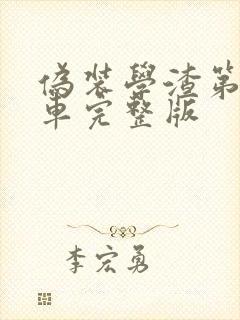 偽装學渣第
車完整版
李宏勇